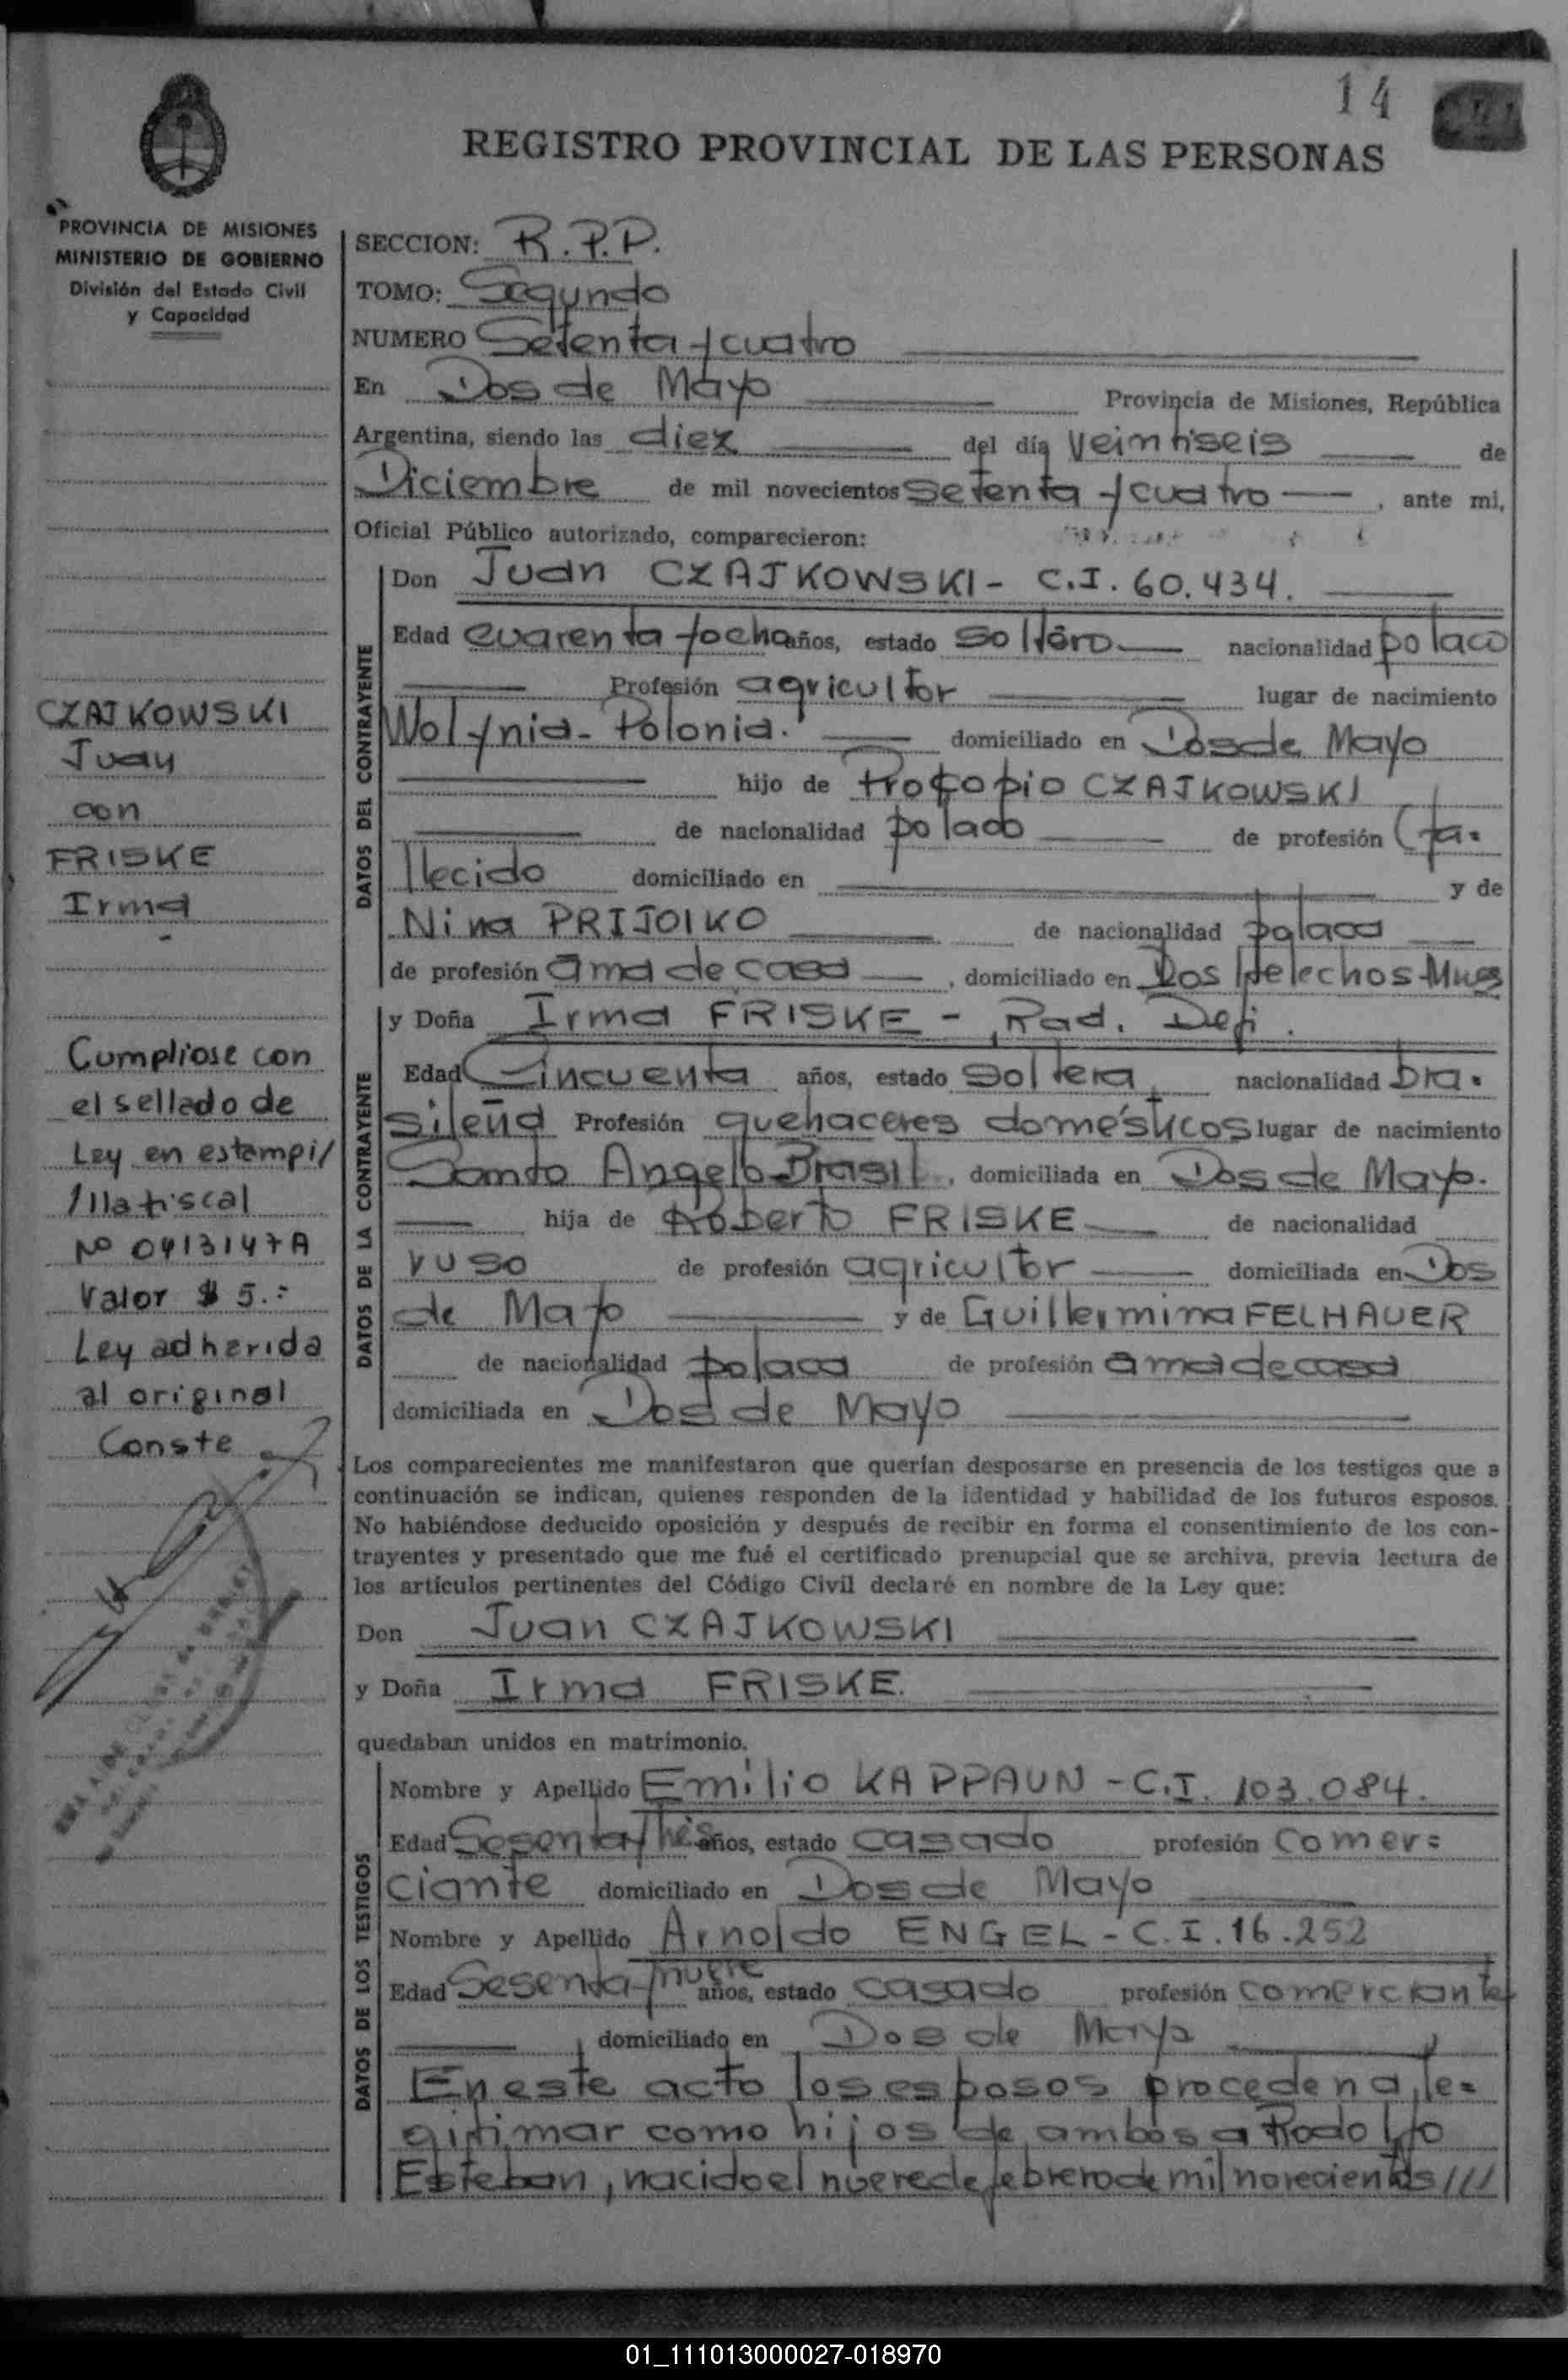 14
REGISTRO PROVINCIAL DE LAS PERSONAS
PROVINCIA DE MISIONES
MINISTERIO DE GOBIERNO
División del Estado Civil
y Capacidad
CZAJKOWSKI
Juan
con
FRISKE
Irma
Cumpliose con
el sellado de
Ley en estampi/
/lla fiscal
Nº 0413147A
Valor $ 5.=
Ley adherida
al original
Conste
SECCION: R.P.P.
TOMO: Segundo
NUMERO Setenta y cuatro
En Dos de Mayo Provincia de Misiones, República
Argentina, siendo las diez del día veintiseis de
Diciembre de mil novecientos setenta y cuatro, ante mi,
Oficial Público autorizado, comparecieron:
DATOS DEL CONTRAYENTE
Don Juan CZAJKOWSKI - C.I. 60.434.
Edad cuarenta y ocho años, estado soltero nacionalidad polaco
Profesión agricultor lugar de nacimiento
Wolynia - Polonia. domiciliado en Dos de Mayo
hijo de Procopio CZAJKOWSKI
de nacionalidad polaco de profesión (fa=
llecido domiciliado en y de
Nina PRIJOIKO de nacionalidad polaca
de profesión ama de casa, domiciliado en Dos Helechos-Mnes
DATOS DE LA CONTRAYENTE
y Doña Irma FRISKE - Rad. Defi.
Edad Cincuenta años, estado soltera nacionalidad bra=
sileña Profesión quehaceres domésticos lugar de nacimiento
Santo Angelo-Brasil, domiciliada en Dos de Mayo.
hija de Roberto FRISKE de nacionalidad
ruso de profesión agricultor domiciliada en Dos
de Mayo y de Guillermina FELHAUER
de nacionalidad polaca de profesión ama de casa
domiciliada en Dos de Mayo
Los comparecientes me manifestaron que querían desposarse en presencia de los testigos que a
continuación se indican, quienes responden de la identidad y habilidad de los futuros esposos.
No habiéndose deducido oposición y después de recibir en forma el consentimiento de los con-
trayentes y presentado que me fué el certificado prenupcial que se archiva, previa lectura de
los artículos pertinentes del Código Civil declaré en nombre de la Ley que:
Don Juan CZAJKOWSKI
y Doña Irma FRISKE.
quedaban unidos en matrimonio.
DATOS DE LOS TESTIGOS
Nombre y Apellido Emilio KAPPAUN - C.I. 103.084.
Edad Sesenta y tres años, estado casado profesión comer=
ciante domiciliado en Dos de Mayo
Nombre y Apellido Arnoldo ENGEL - C.I. 16.252
Edad Sesenta y nueve años, estado casado profesión comerciante
domiciliado en Dos de Mayo
En este acto los esposos proceden a le=
gitimar como hijos de ambos a Rodolfo
Esteban, nacido el nueve de febrero de mil novecientos ///
01_111013000027-018970